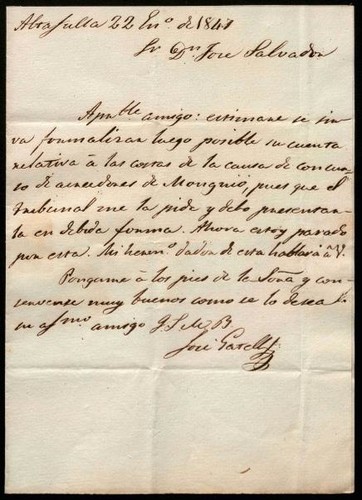 Altafulla 22 En.º de 1841
Sr. Dn. José Salvador
Apble. amigo: estimaré se sir-
va formalizar luego posible su cuenta
relativa á las costas de la causa de concur-
so de acreedores de Monguió, pues que el
Tribunal me la pide y debo presentar-
la en debida forma. Ahora estoy parado
por esta. Mi herm.º dador de esta hablará á V.
Pongame á los pies de la Señª y con-
servense muy buenos como se lo desea
su afmo. amigo Q.S.M.B.
José Gatell